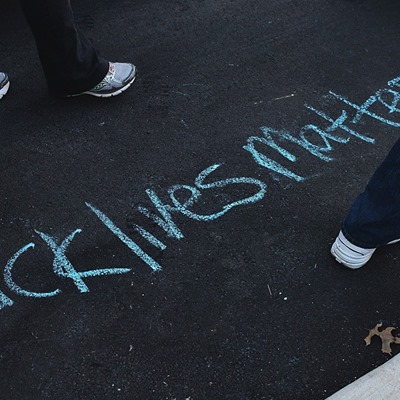 ck lives Matter